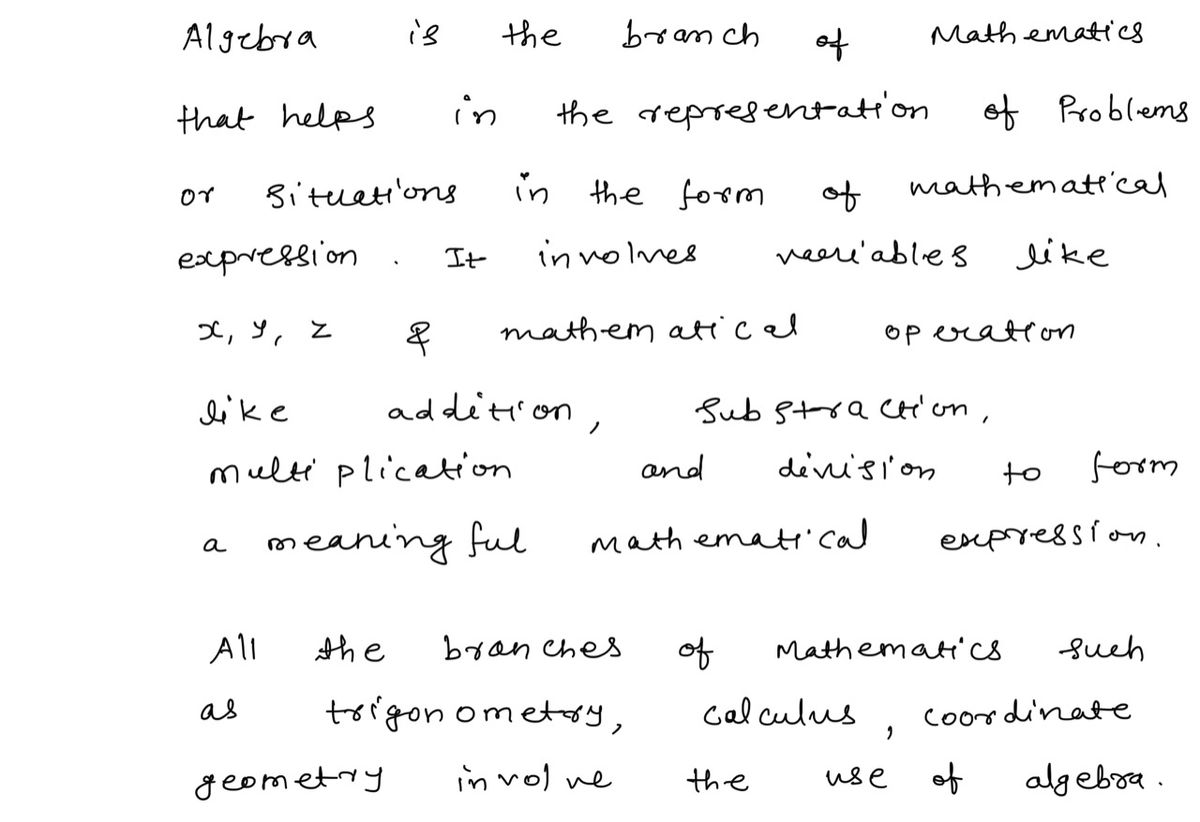 Algebra is the branch of Mathematics
that helps in the representation of Problems
or Situations in the form of mathematical
expression. It involves variables like
x, y, z & mathematical operation
like addition, Substraction,
multiplication and division to form
a meaningful mathematical expression.
All the branches of Mathematics such
as trigonometry, calculus, coordinate
geometry involve the use of algebra.